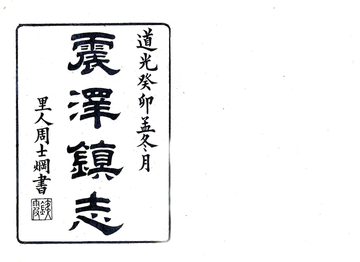 道光癸卯孟冬月
震澤鎮志
里人周士嫻書